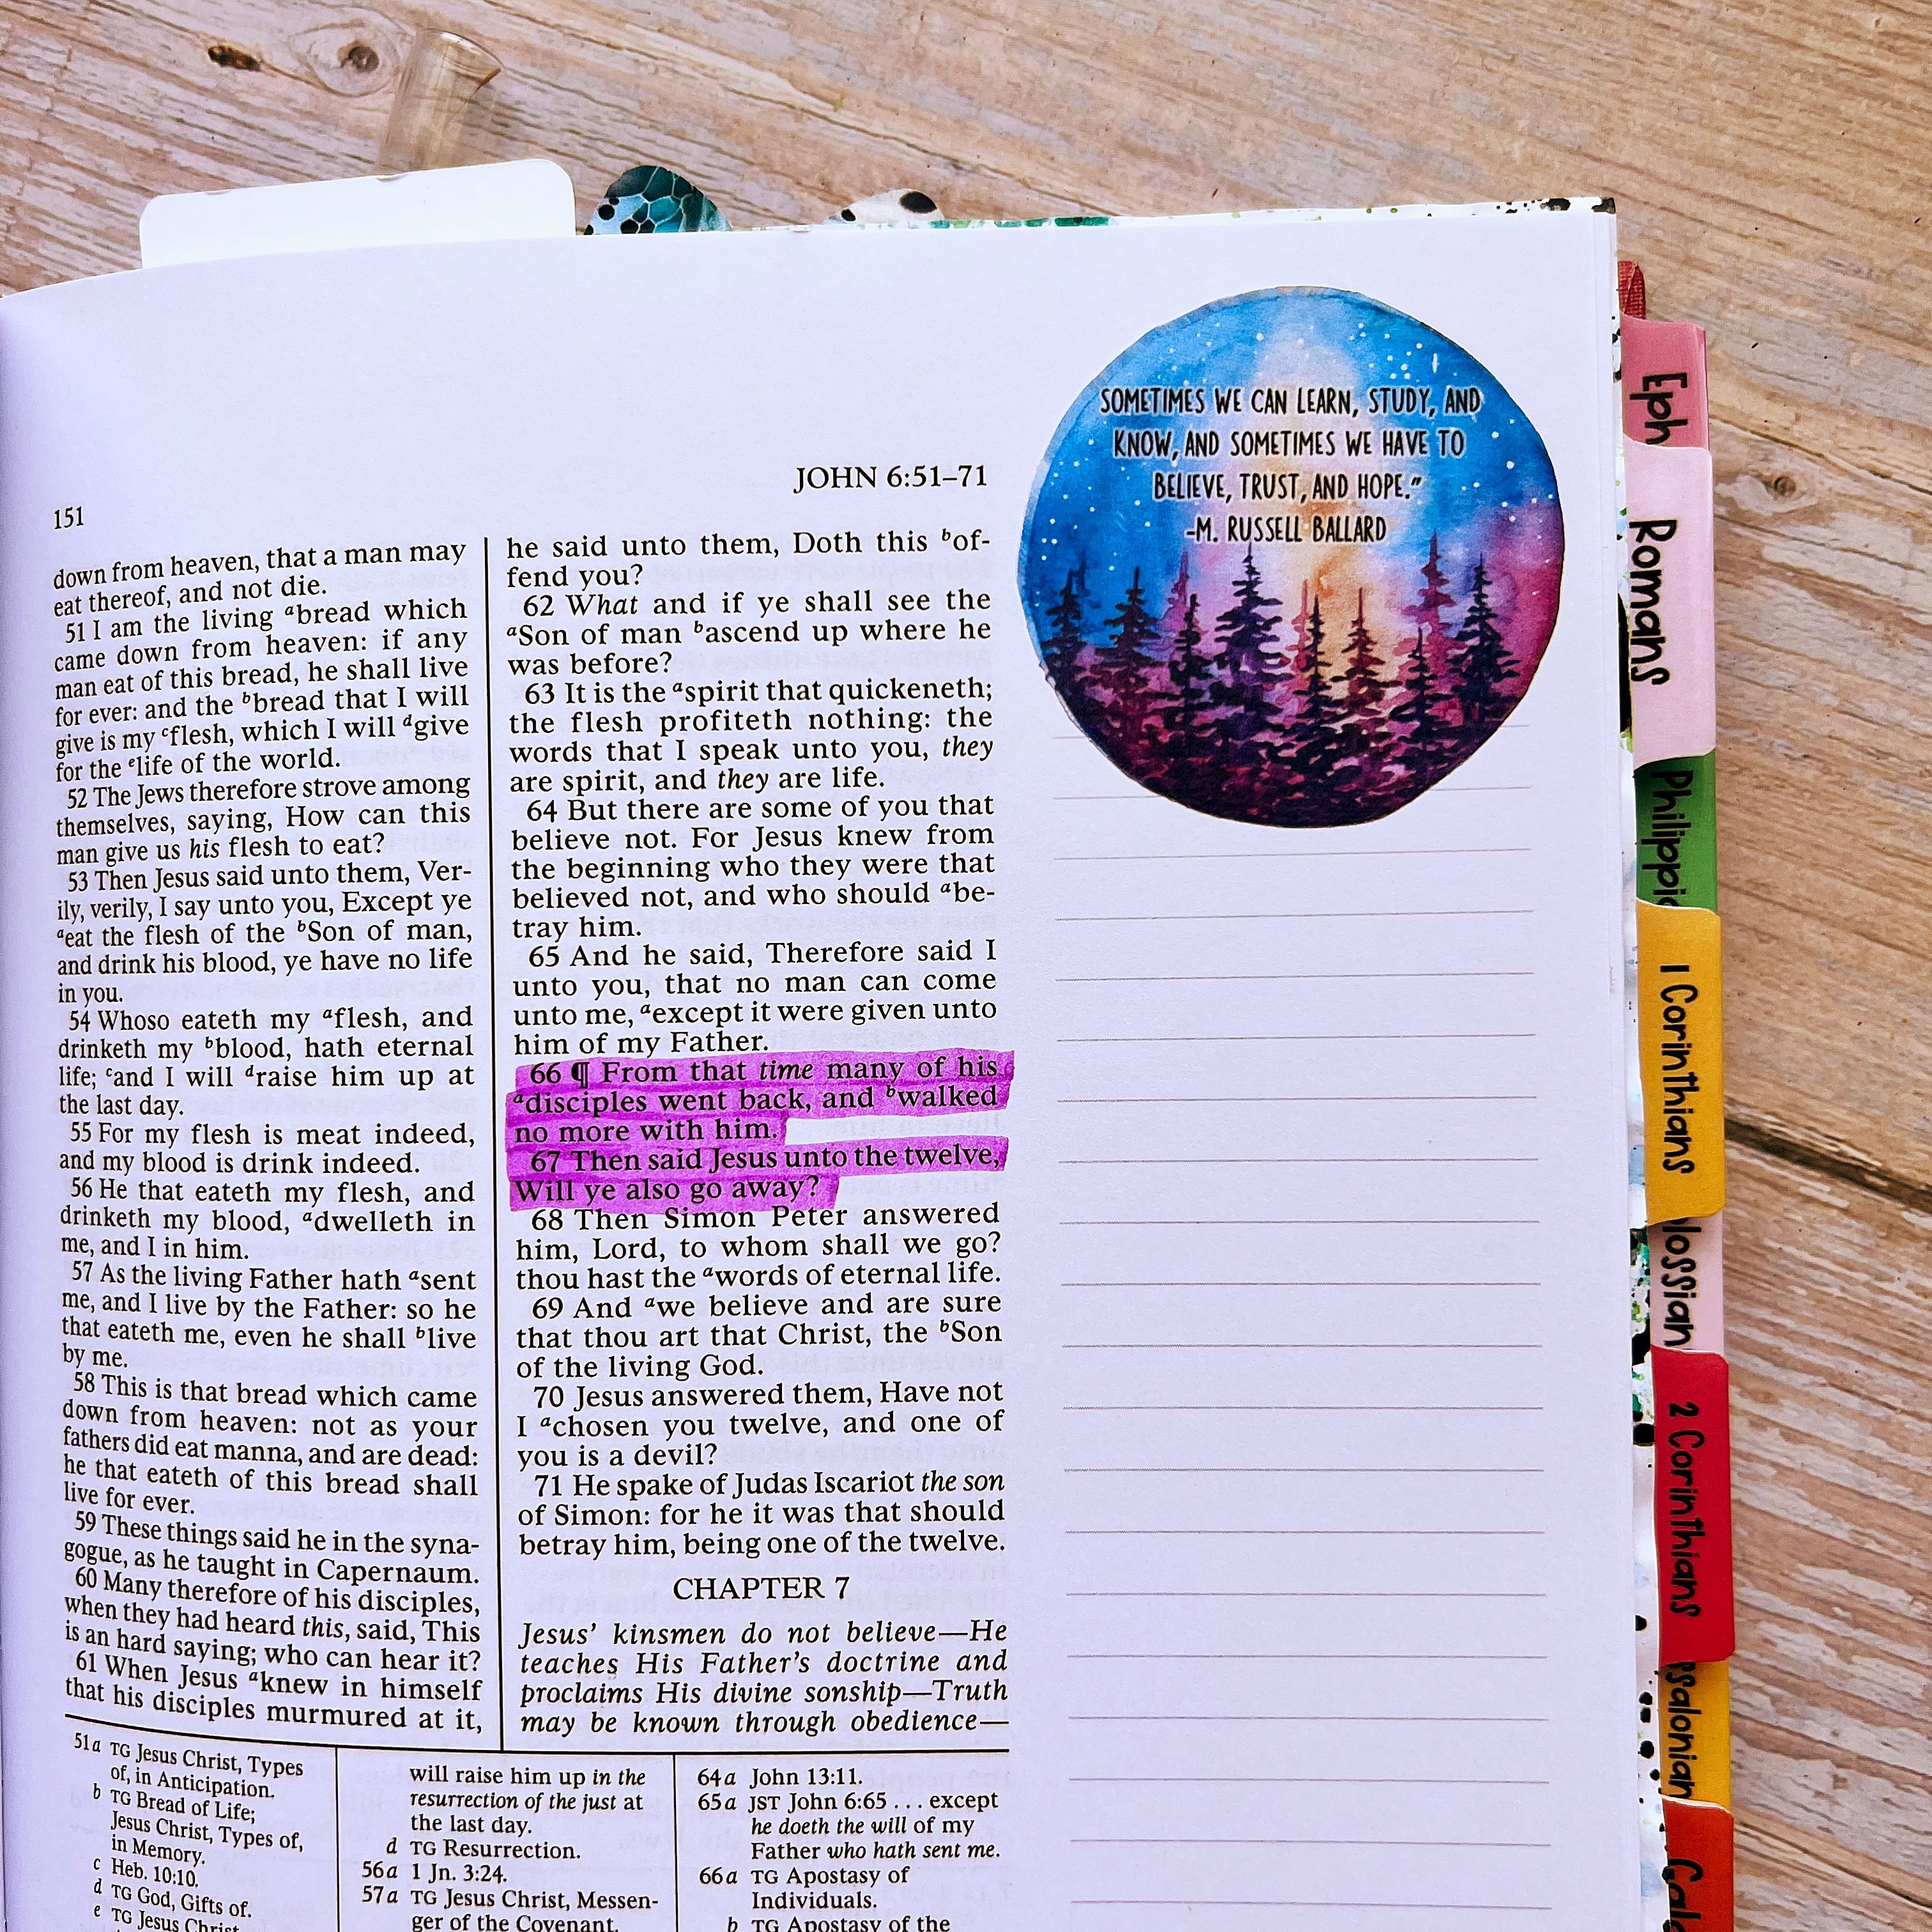 151
JOHN 6:51–71
down from heaven, that a man may
eat thereof, and not die.
51 I am the living ᵃbread which
came down from heaven: if any
man eat of this bread, he shall live
for ever: and the ᵇbread that I will
give is my ᶜflesh, which I will ᵈgive
for the ᵉlife of the world.
52 The Jews therefore strove among
themselves, saying, How can this
man give us his flesh to eat?
53 Then Jesus said unto them, Ver-
ily, verily, I say unto you, Except ye
ᵃeat the flesh of the ᵇSon of man,
and drink his blood, ye have no life
in you.
54 Whoso eateth my ᵃflesh, and
drinketh my ᵇblood, hath eternal
life; ᶜand I will ᵈraise him up at
the last day.
55 For my flesh is meat indeed,
and my blood is drink indeed.
56 He that eateth my flesh, and
drinketh my blood, ᵃdwelleth in
me, and I in him.
57 As the living Father hath ᵃsent
me, and I live by the Father: so he
that eateth me, even he shall ᵇlive
by me.
58 This is that bread which came
down from heaven: not as your
fathers did eat manna, and are dead:
he that eateth of this bread shall
live for ever.
59 These things said he in the syna-
gogue, as he taught in Capernaum.
60 Many therefore of his disciples,
when they had heard this, said, This
is an hard saying; who can hear it?
61 When Jesus ᵃknew in himself
that his disciples murmured at it,
he said unto them, Doth this ᵇof-
fend you?
62 What and if ye shall see the
ᵃSon of man ᵇascend up where he
was before?
63 It is the ᵃspirit that quickeneth;
the flesh profiteth nothing: the
words that I speak unto you, they
are spirit, and they are life.
64 But there are some of you that
believe not. For Jesus knew from
the beginning who they were that
believed not, and who should ᵃbe-
tray him.
65 And he said, Therefore said I
unto you, that no man can come
unto me, ᵃexcept it were given unto
him of my Father.
66 ¶ From that time many of his
ᵃdisciples went back, and ᵇwalked
no more with him.
67 Then said Jesus unto the twelve,
Will ye also go away?
68 Then Simon Peter answered
him, Lord, to whom shall we go?
thou hast the ᵃwords of eternal life.
69 And ᵃwe believe and are sure
that thou art that Christ, the ᵇSon
of the living God.
70 Jesus answered them, Have not
I ᵃchosen you twelve, and one of
you is a devil?
71 He spake of Judas Iscariot the son
of Simon: for he it was that should
betray him, being one of the twelve.
CHAPTER 7
Jesus’ kinsmen do not believe—He
teaches His Father’s doctrine and
proclaims His divine sonship—Truth
may be known through obedience—
51a TG Jesus Christ, Types
of, in Anticipation.
b TG Bread of Life;
Jesus Christ, Types of,
in Memory.
c Heb. 10:10.
d TG God, Gifts of.
e TG Jesus Christ
will raise him up in the
resurrection of the just at
the last day.
d TG Resurrection.
56a 1 Jn. 3:24.
57a TG Jesus Christ, Messen-
ger of the Covenant.
64a John 13:11.
65a JST John 6:65 . . . except
he doeth the will of my
Father who hath sent me.
66a TG Apostasy of
Individuals.
b TG Apostasy of the
SOMETIMES WE CAN LEARN, STUDY, AND
KNOW, AND SOMETIMES WE HAVE TO
BELIEVE, TRUST, AND HOPE.”
-M. RUSSELL BALLARD
Eph
Romans
Philippi
1 Corinthians
lossian
2 Corinthians
ssalonian
Gala